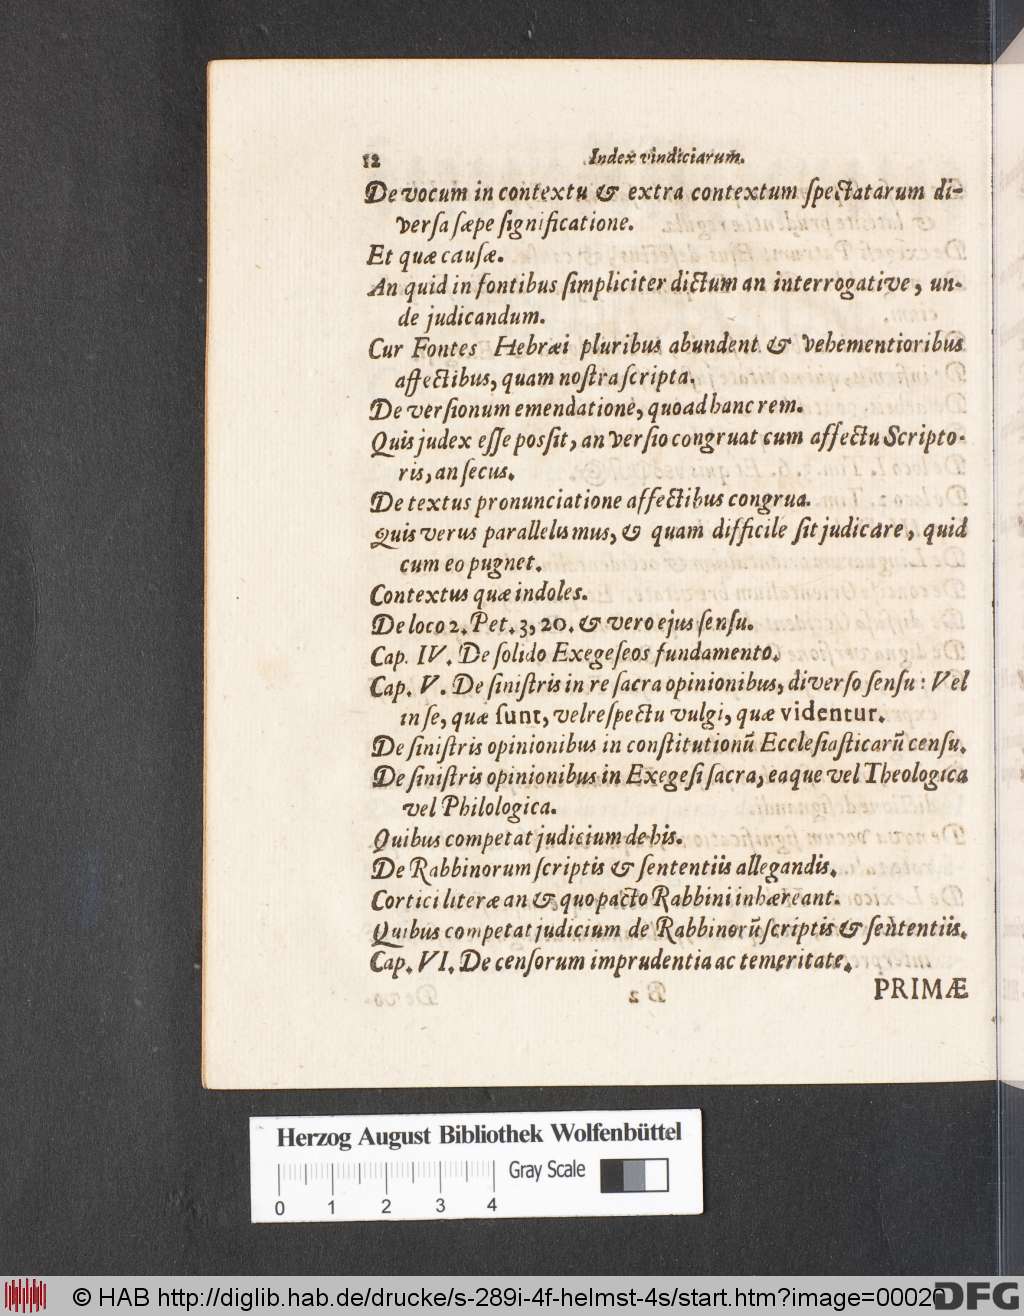 12 Index vindiciarum.
De vocum in contextu & extra contextum ſpectatarum di-
verſa ſæpe ſignificatione.
Et quæ cauſæ.
An quid in fontibus ſimpliciter dictum an interrogative, un-
de judicandum.
Cur Fontes Hebræi pluribus abundent & vehementioribus
affectibus, quam noſtra ſcripta.
De verſionum emendatione, quoad hanc rem.
Quis judex eſſe poſſit, an verſio congruat cum affectu Scripto-
ris, an ſecus.
De textus pronunciatione affectibus congrua.
Quis verus parallelismus, & quam difficile ſit judicare, quid
cum eo pugnet.
Contextus quæ indoles.
De loco 2. Pet. 3, 20. & vero ejus ſenſu.
Cap. IV. De ſolido Exegeſeos fundamento.
Cap. V. De ſiniſtris in re ſacra opinionibus, diverſo ſenſu: Vel
in ſe, quæ ſunt, vel reſpectu vulgi, quæ videntur.
De ſiniſtris opinionibus in conſtitutionū Eccleſiaſticarū cenſu.
De ſiniſtris opinionibus in Exegeſi ſacra, eaque vel Theologica
vel Philologica.
Quibus competat judicium de his.
De Rabbinorum ſcriptis & ſententiis allegandis.
Cortici literæ an & quo pacto Rabbini inhæreant.
Quibus competat judicium de Rabbinorū ſcriptis & ſententiis.
Cap. VI. De cenſorum imprudentia ac temeritate.
PRIMÆ
Herzog August Bibliothek Wolfenbüttel
Gray Scale
0 1 2 3 4
© HAB http://diglib.hab.de/drucke/s-289i-4f-helmst-4s/start.htm?image=00020
DFG